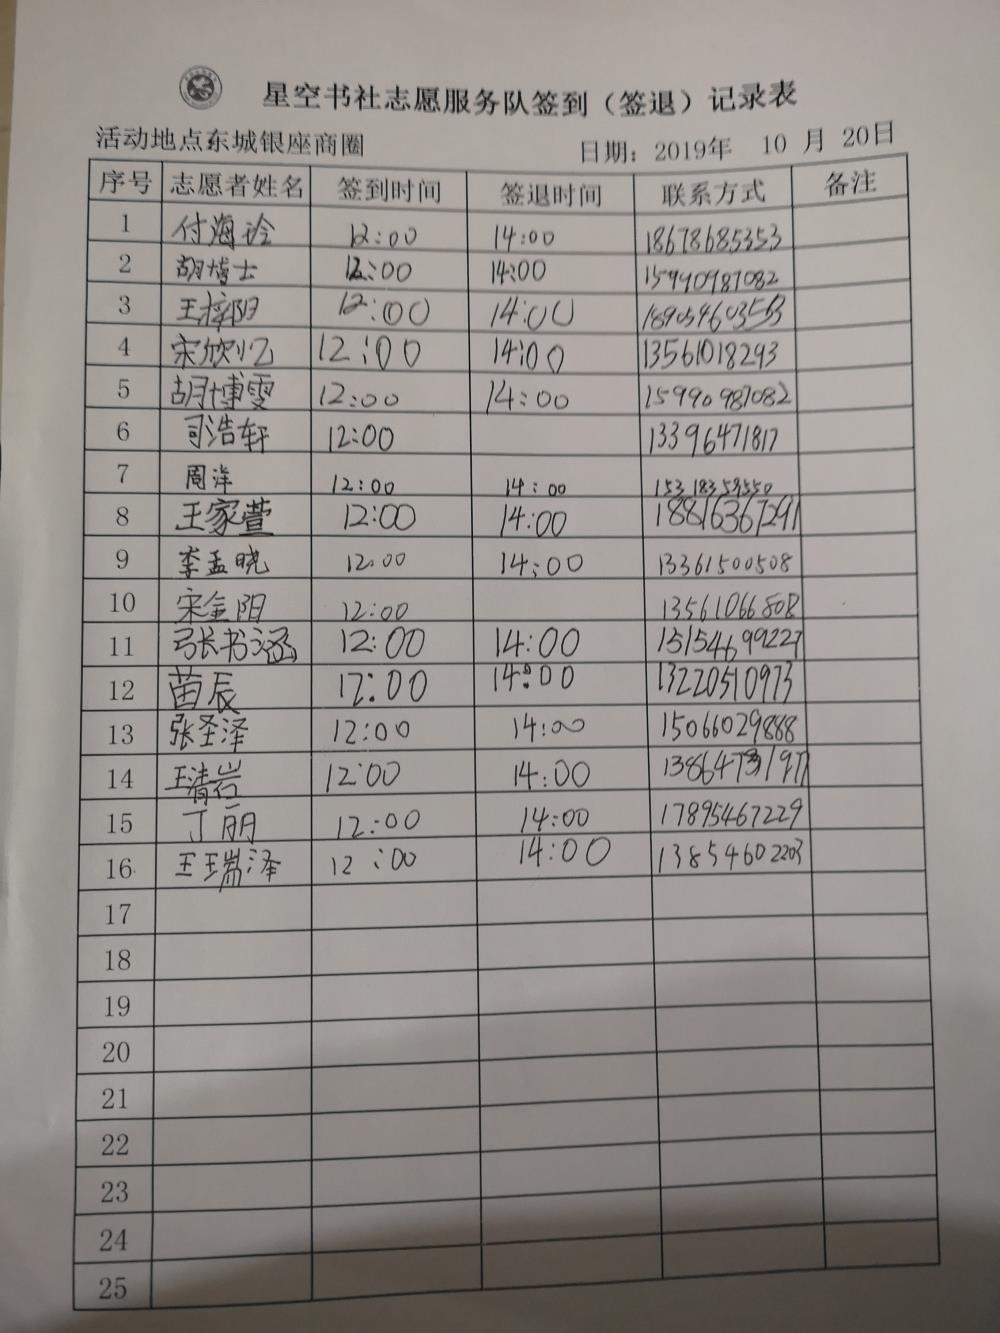 星空书社志愿服务队签到（签退）记录表
活动地点东城银座商圈 日期：2019年 10 月 20日
序号 志愿者姓名 签到时间 签退时间 联系方式 备注
1 付海玲 12:00 14:00 18678685353
2 胡博士 12:00 14:00 15990987082
3 王梓阳 12:00 14:00 18905460353
4 宋欣忆 12:00 14:00 13561018293
5 胡博雯 12:00 14:00 15990987082
6 司浩轩 12:00 13396471817
7 周洋 12:00 14:00 15318359550
8 王家萱 12:00 14:00 18816367291
9 李孟晓 12:00 14:00 13361500508
10 宋金阳 12:00 13561066808
11 张书涵 12:00 14:00 15154699227
12 苗辰 12:00 14:00 13220510973
13 张圣泽 12:00 14:00 15066029888
14 王清岩 12:00 14:00
15 丁丽 12:00 14:00 17895467229
16 王瑞泽 12:00 14:00 13854602203
17
18
19
20
21
22
23
24
25